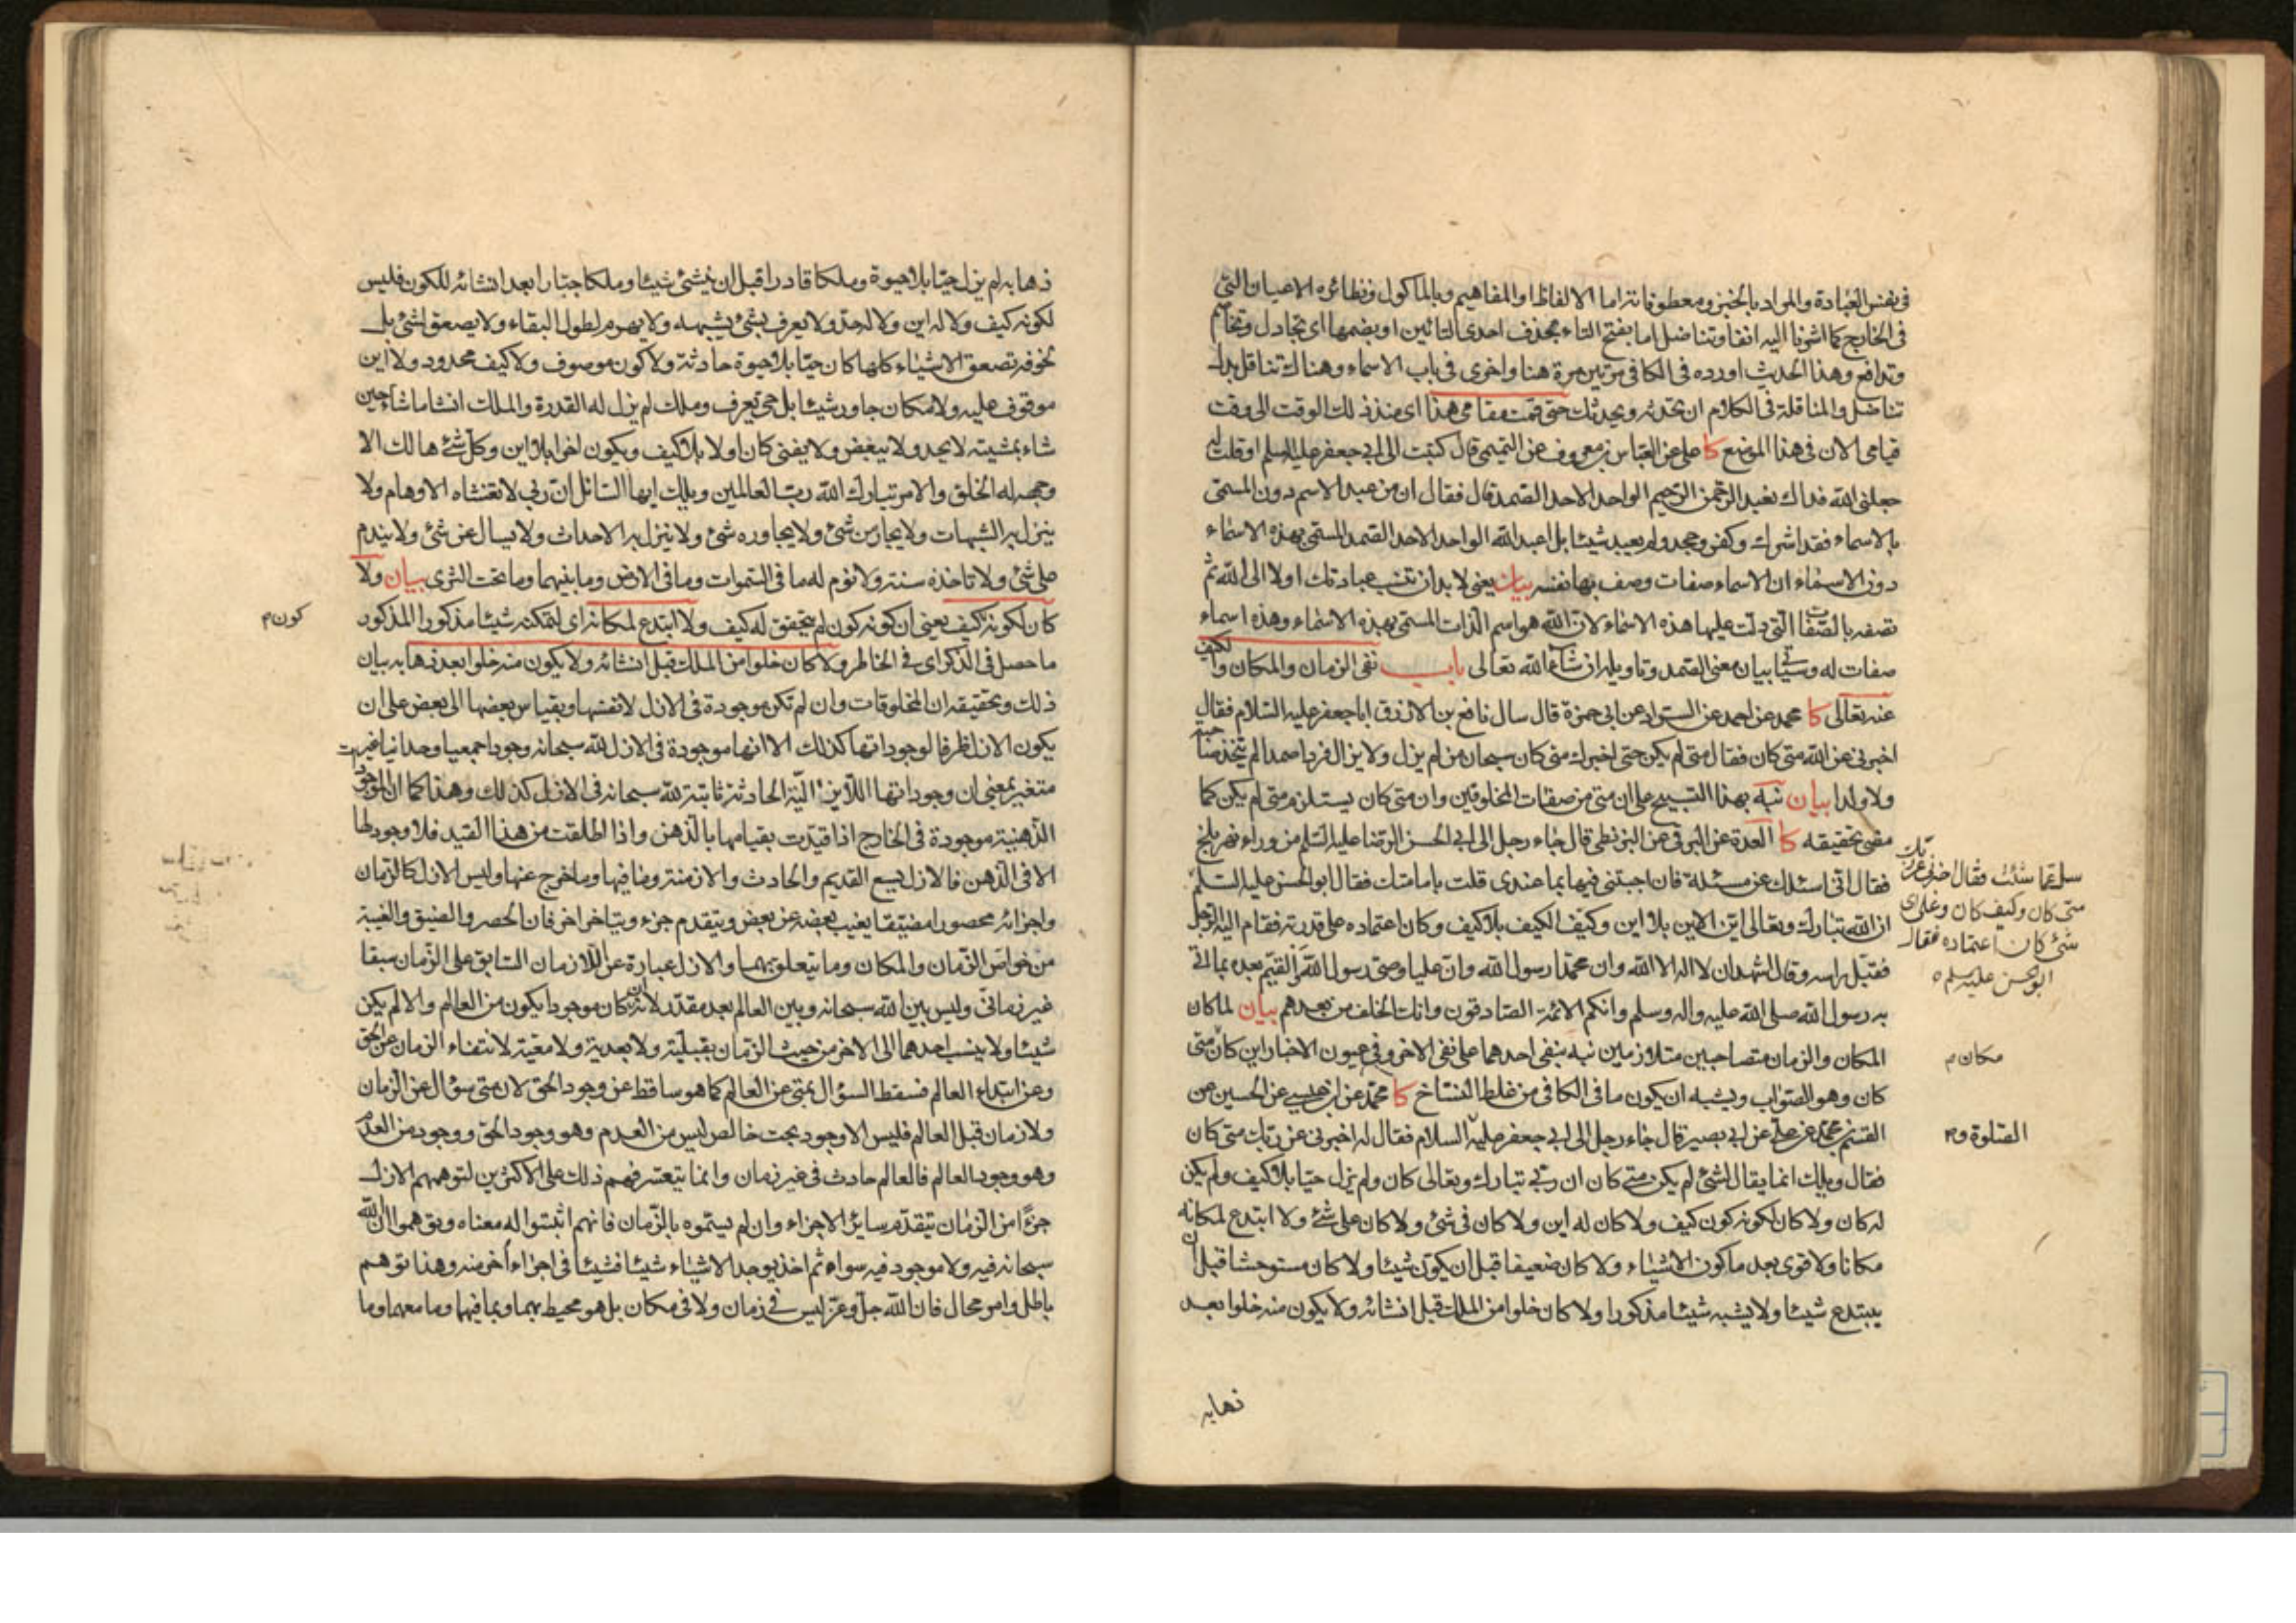 فى نفس العبادة والمراد بالخبز ومعطوفاته اما الالفاظ او المفاهيم وبالماكول ونظائره الاعيان التى
فى الخارج كما اشرنا اليه انفا وتناضل اما بفتح التاء بحذف احدى التائين او بضمها اى تجادل وتخاصم
وتدافع وهذا الحديث اورده فى الكافى مرتين مرة هنا واخرى فى باب الاسماء وهناك تناقل بدل
تناضل والمناقلة فى الكلام ان تحدثه ويحدثك حتى قمت مقامى هذا اى منذ ذلك الوقت الى وقت
قيامى الان فى هذا الموضع كا على عن العباس بن معروف عن التميمى قال كتبت الى ابى جعفر عليه السلم او قلت له
جعلنى الله فداك نعبد الرحمن الرحيم الواحد الاحد الصمد قال فقال ان من عبد الاسم دون المسمى
بالاسماء فقد اشرك وكفر وجحد ولم يعبد شيئا بل اعبد الله الواحد الاحد الصمد المسمى بهذه الاسماء
دون الاسماء ان الاسماء صفات وصف بها نفسه بيان يعنى لابد ان تنسب عبادتك اولا الى الله ثم
تصفه بالصفات التى دلت عليها هذه الاسماء لان الله هو اسم الذات المسمى بهذه الاسماء وهذه اسماء
صفات له وسياتى بيان معنى الصمد وتاويله ان شاء الله تعالى باب نفى الزمان والمكان والكيف
عنه تعالى كا محمد عن احمد عن السراد عن ابى حمزة قال سال نافع بن الازرق ابا جعفر عليه السلام فقال
اخبرنى عن الله متى كان فقال متى لم يكن حتى اخبرك متى كان سبحان من لم يزل ولا يزال فردا صمدا لم يتخذ صاحبة
ولا ولدا بيان نبه بهذا التسبيح على ان متى من صفات المخلوقين وان متى كان يستلزم متى لم يكن كما
مضى تحقيقه كا العدة عن البرقى عن البزنطى قال جاء رجل الى ابى الحسن الرضا عليه السلم من وراء نهر بلخ
فقال انى اسئلك عن مسئلة فان اجبتنى فيها بما عندى قلت بامامتك فقال ابو الحسن عليه السلم
سل عما شئت فقال اخبرنى عن ربك
متى كان وكيف كان وعلى اى
شئ كان اعتماده فقال
ابو الحسن عليه سلم
ان الله تبارك وتعالى اين الاين بلا اين وكيف الكيف بلا كيف وكان اعتماده على قدرته فقام اليه الرجل
فقبل راسه وقال اشهد ان لا اله الا الله وان محمدا رسول الله وان عليا وصى رسول الله والقيم بعده بما اتى
به رسول الله صلى الله عليه واله وسلم وانكم الائمة الصادقون وانك الخلف من بعدهم بيان لما كان
المكان والزمان متصاحبين متلازمين نبه بنفى احدهما على نفى الاخر وفى عيون الاخبار اين كان متى
مكان م
كان وهو الصواب ويشبه ان يكون ما فى الكافى من غلط النساخ كا محمد عن ابن عيسى عن الحسين عن
القسم بن محمد عن على عن ابى بصير قال جاء رجل الى ابى جعفر عليه السلام فقال له اخبرنى عن ربك متى كان
فقال ويلك انما يقال لشئ لم يكن متى كان ان ربى تبارك وتعالى كان ولم يزل حيا بلا كيف ولم يكن
له كان ولا كان لكونه كون كيف ولا كان له اين ولا كان فى شئ ولا كان على شئ ولا ابتدع لمكانه
مكانا ولا قوى بعد ما كون الاشياء ولا كان ضعيفا قبل ان يكون شيئا ولا كان مستوحشا قبل ان
يبتدع شيئا ولا يشبه شيئا مذكورا ولا كان خلوا من الملك قبل انشائه ولا يكون منه خلوا بعد
ذهابه
ذهابه لم يزل حيا بلا حيوة وملكا قادرا قبل ان ينشئ شيئا وملكا جبارا بعد انشائه للكون فليس
لكونه كيف ولا له اين ولا له حد ولا يعرف بشئ يشبهه ولا يهرم لطول البقاء ولا يصعق لشئ بل
لخوفه تصعق الاشياء كلها كان حيا بلا حيوة حادثة ولا كون موصوف ولا كيف محدود ولا اين
موقوف عليه ولا مكان جاور شيئا بل حى يعرف وملك لم يزل له القدرة والملك انشا ما شاء حين
شاء بمشيته لا يحد ولا يبعض ولا يفنى كان اولا بلا كيف ويكون اخرا بلا اين وكل شئ هالك الا
وجهه له الخلق والامر تبارك الله رب العالمين ويلك ايها السائل ان ربى لا تغشاه الاوهام ولا
ينزل به الشبهات ولا يجار من شئ ولا يجاوره شئ ولا ينزل به الاحداث ولا يسال عن شئ ولا يندم
على شئ ولا تاخذه سنة ولا نوم له ما فى السموات وما فى الارض وما بينهما وما تحت الثرى بيان ولا
كان لكونه كيف يعنى ان كونه كون لم يتحقق له كيف ولا ابتدع لمكانه اى لتمكنه شيئا مذكورا المذكور
كون م
ما حصل فى الذكر اى فى الخاطر ولا كان خلوا من الملك قبل انشائه ولا يكون منه خلوا بعد ذهابه بيان
ذلك وتحقيقه ان المخلوقات وان لم تكن موجودة فى الازل لانفسها وبقياس بعضها الى بعض على ان
يكون الازل ظرفا لوجوداتها كذلك الا انها موجودة فى الازل لله سبحانه وجودا جمعيا وحدانيا غير
متغير بمعنى ان وجوداتها اللايزالية الحادثة ثابتة لله سبحانه فى الازل كذلك وهذا كما ان الموجودات
الذهنية موجودة فى الخارج اذا قيدت بقيامها بالذهن واذا اطلقت من هذا القيد فلا وجود لها
الا فى الذهن فالازل يسع القديم والحادث والازمنة وما فيها وما خرج عنها وليس الازل كالزمان
واجزائه محصورا مضيقا يغيب بعضه عن بعض ويتقدم جزء ويتاخر اخر فان الحصر والضيق والغيبة
من خواص الزمان والمكان وما يتعلق بهما والازل عبارة عن اللازمان السابق على الزمان سبقا
غير زمانى وليس بين الله سبحانه وبين العالم بعد مقدر لانه ان كان موجودا يكون من العالم والا لم يكن
شيئا ولا ينسب احدهما الى الاخر من حيث الزمان بقبلية ولا بعدية ولا معية لانتفاء الزمان عن الحق
وعن ابتداء العالم فسقط السؤال بمتى عن العالم كما هو ساقط عن وجود الحق لان متى سؤال عن الزمان
ولا زمان قبل العالم فليس الا وجود بحت خالص ليس من العدم وهو وجود الحق ووجود من العدم
وهو وجود العالم فالعالم حادث فى غير زمان وانما يتعسر فهم ذلك على الاكثرين لتوهمهم الازل
جزءا من الزمان يتقدم سائر الاجزاء وان لم يسموه بالزمان فانهم اثبتوا له معناه وتوهموا ان الله
سبحانه فيه ولا موجود فيه سواه ثم اخذ يوجد الاشياء شيئا فشيئا فى اجزاء اخر منه وهذا توهم
باطل وامر محال فان الله جل وعز ليس فى زمان ولا فى مكان بل هو محيط بهما وبما فيهما وما معهما وما